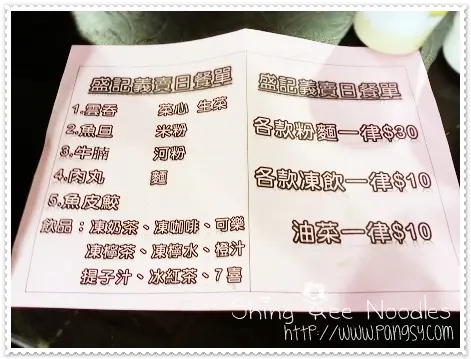 盛記義賣日餐單
1.雲吞 菜心 生菜
2.魚旦 米粉
3.牛腩 河粉
4.肉丸 麵
5.魚皮餃
飲品：凍奶茶、凍咖啡、可樂
凍檸茶、凍檸水、橙汁
提子汁、冰紅茶、7喜
盛記義賣日餐單
各款粉麵一律$30
各款凍飲一律$10
油菜一律$10
Shing Kee Noodles
http://www.pangsy.com